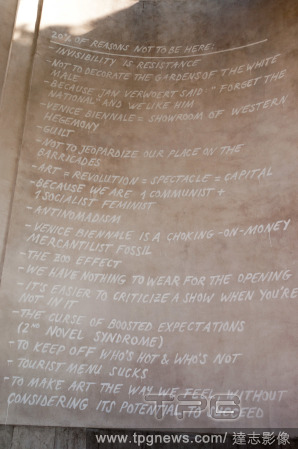 20% OF REASONS NOT TO BE HERE:
- INVISIBILITY IS RESISTANCE
- NOT TO DECORATE THE GARDENS OF THE WHITE
MALE
- BECAUSE JAN VERWOERT SAID - "FORGET THE
NATIONAL" AND WE LIKE HIM
- VENICE BIENNALE = SHOWROOM OF WESTERN
HEGEMONY
- GUILT
- NOT TO JEOPARDIZE OUR PLACE ON THE
BARRICADES
- ART = REVOLUTION = SPECTACLE = CAPITAL
- BECAUSE WE ARE 1 COMMUNIST +
1 SOCIALIST FEMINIST
- ANTINOMADISM
- VENICE BIENNALE IS A CHOKING-ON-MONEY
MERCANTILIST FOSSIL
- THE ZOO EFFECT
- WE HAVE NOTHING TO WEAR FOR THE OPENING
- IT'S EASIER TO CRITICIZE A SHOW WHEN YOU'RE
NOT IN IT
- THE CURSE OF BOOSTED EXPECTATIONS
(2ND NOVEL SYNDROME)
- TO KEEP OFF WHO'S HOT & WHO'S NOT
- TOURIST MENU SUCKS
- TO MAKE ART THE WAY WE FEEL, WITHOUT
CONSIDERING ITS POTENTIAL TO SUCCEED
TPG
www.tpgnews.com/ 達志影像